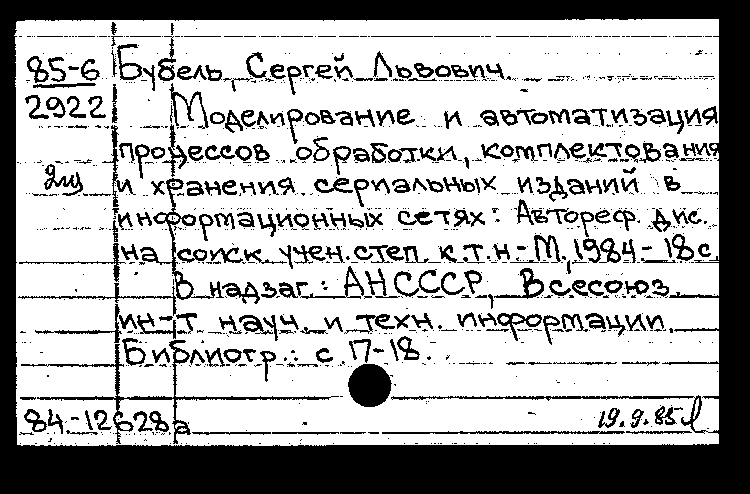 85-6 Бубель, Сергей Львович.
2922 Моделирование и автоматизация
процессов обработки, комплектования
и хранения сериальных изданий в
информационных сетях: Автореф. дис.
на соиск. учен. степ. к.т.н.-М., 1984.-18с.
В надзаг.: АН СССР, Всесоюз.
ин-т науч. и техн. информации.
Библиогр.: с. 17-18.
84-12628а 19.9.85